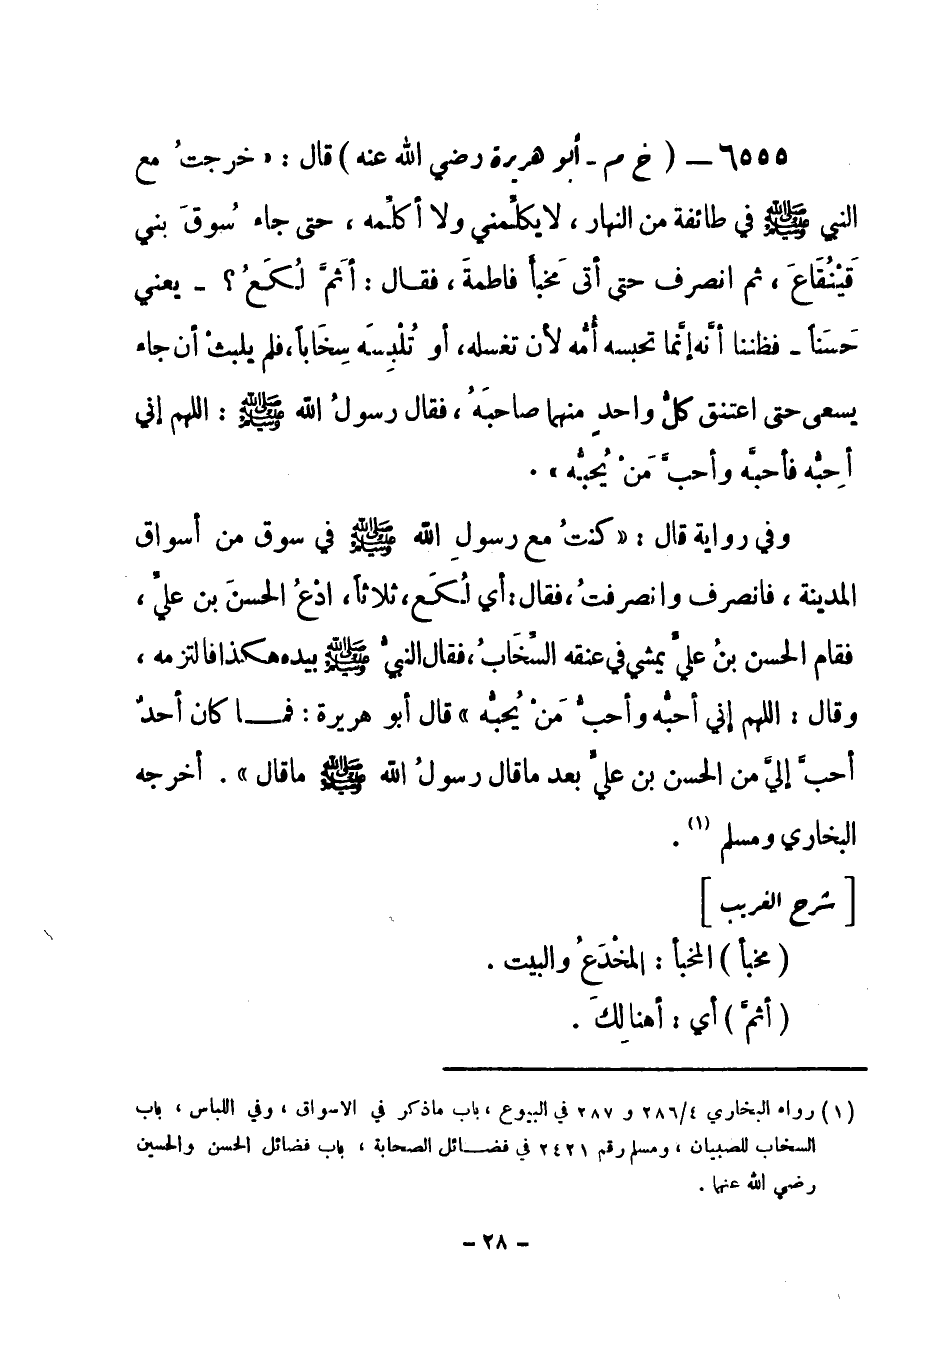 ٦٥٥٥ — ( خ م - أبو هريرة رضي الله عنه ) قال : « خرجتُ مع
النبي ﷺ في طائفة من النهار ، لا يكلِّمني ولا أكلِّمه ، حتى جاء سُوقَ بني
قَيْنُقَاعَ ، ثم انصرف حتى أتى مَخبأَ فاطمةَ ، فقال : أَثَمَّ لُكَعُ ؟ - يعني
حَسَناً - فظننا أنَّه إنَّما تحبسه أُمُّه لأن تغسله، أو تُلْبِسَه سِخَاباً، فلم يلبثْ أن جاء
يسعى حتى اعتنق كلُّ واحدٍ منهما صاحبَهُ ، فقال رسولُ الله ﷺ : اللهم إني
أحِبُّه فأحبَّه وأحبَّ مَنْ يُحبُّه » .
وفي رواية قال : « كنتُ مع رسولِ الله ﷺ في سوق من أسواق
المدينة ، فانصرف وانصرفتُ ، فقال : أي لُكَع ، ثلاثاً ، ادْعُ الحسنَ بن عليٍّ ،
فقام الحسن بنُ عليٍّ يمشي في عنقه السِّخَابُ ، فقال النبيُّ ﷺ بيده هكذا فالتزمه ،
وقال : اللهم إني أحبُّه وأحبُّ مَنْ يُحبُّه » قال أبو هريرة : فما كان أحدٌ
أحبَّ إليَّ من الحسن بن عليٍّ بعد ما قال رسولُ الله ﷺ ما قال » . أخرجه
البخاري ومسلم (١) .
[ شرح الغريب ]
( مخبأ ) المخبأ : المخْدَعُ والبيت .
( أثمَّ ) أي : أهنالِكَ .
(١) رواه البخاري ٢٨٦/٤ و ٢٨٧ في البيوع ، باب ماذكر في الاسواق ، وفي اللباس ، باب
السخاب للصبيان ، ومسلم رقم ٢٤٢١ في فضائل الصحابة ، باب فضائل الحسن والحسين
رضي الله عنهما .
- ٢٨ -